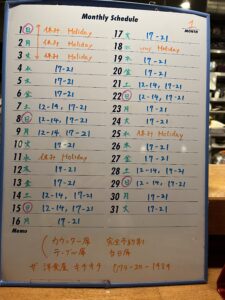 Monthly Schedule
1 MONTH
1 日 休み Holiday
2 月 休み Holiday
3 火 休み Holiday
4 水 17-21
5 木 17-21
6 金 17-21
7 土 12-14, 17-21
8 日 12-14, 17-21
9 月 12-14, 17-21
10 火 17-21
11 水 休み Holiday
12 木 17-21
13 金 17-21
14 土 12-14, 17-21
15 日 12-14, 17-21
16 月 17-21
17 火 17-21
18 水 休み Holiday
19 木 17-21
20 金 17-21
21 土 12-14, 17-21
22 日 12-14, 17-21
23 月 17-21
24 火 17-21
25 水 休み Holiday
26 木 17-21
27 金 17-21
28 土 12-14, 17-21
29 日 12-14, 17-21
30 月 17-21
31 火 17-21
Memo
カウンター席 完全予約制
テーブル席
ザ 洋食屋 キチキチ